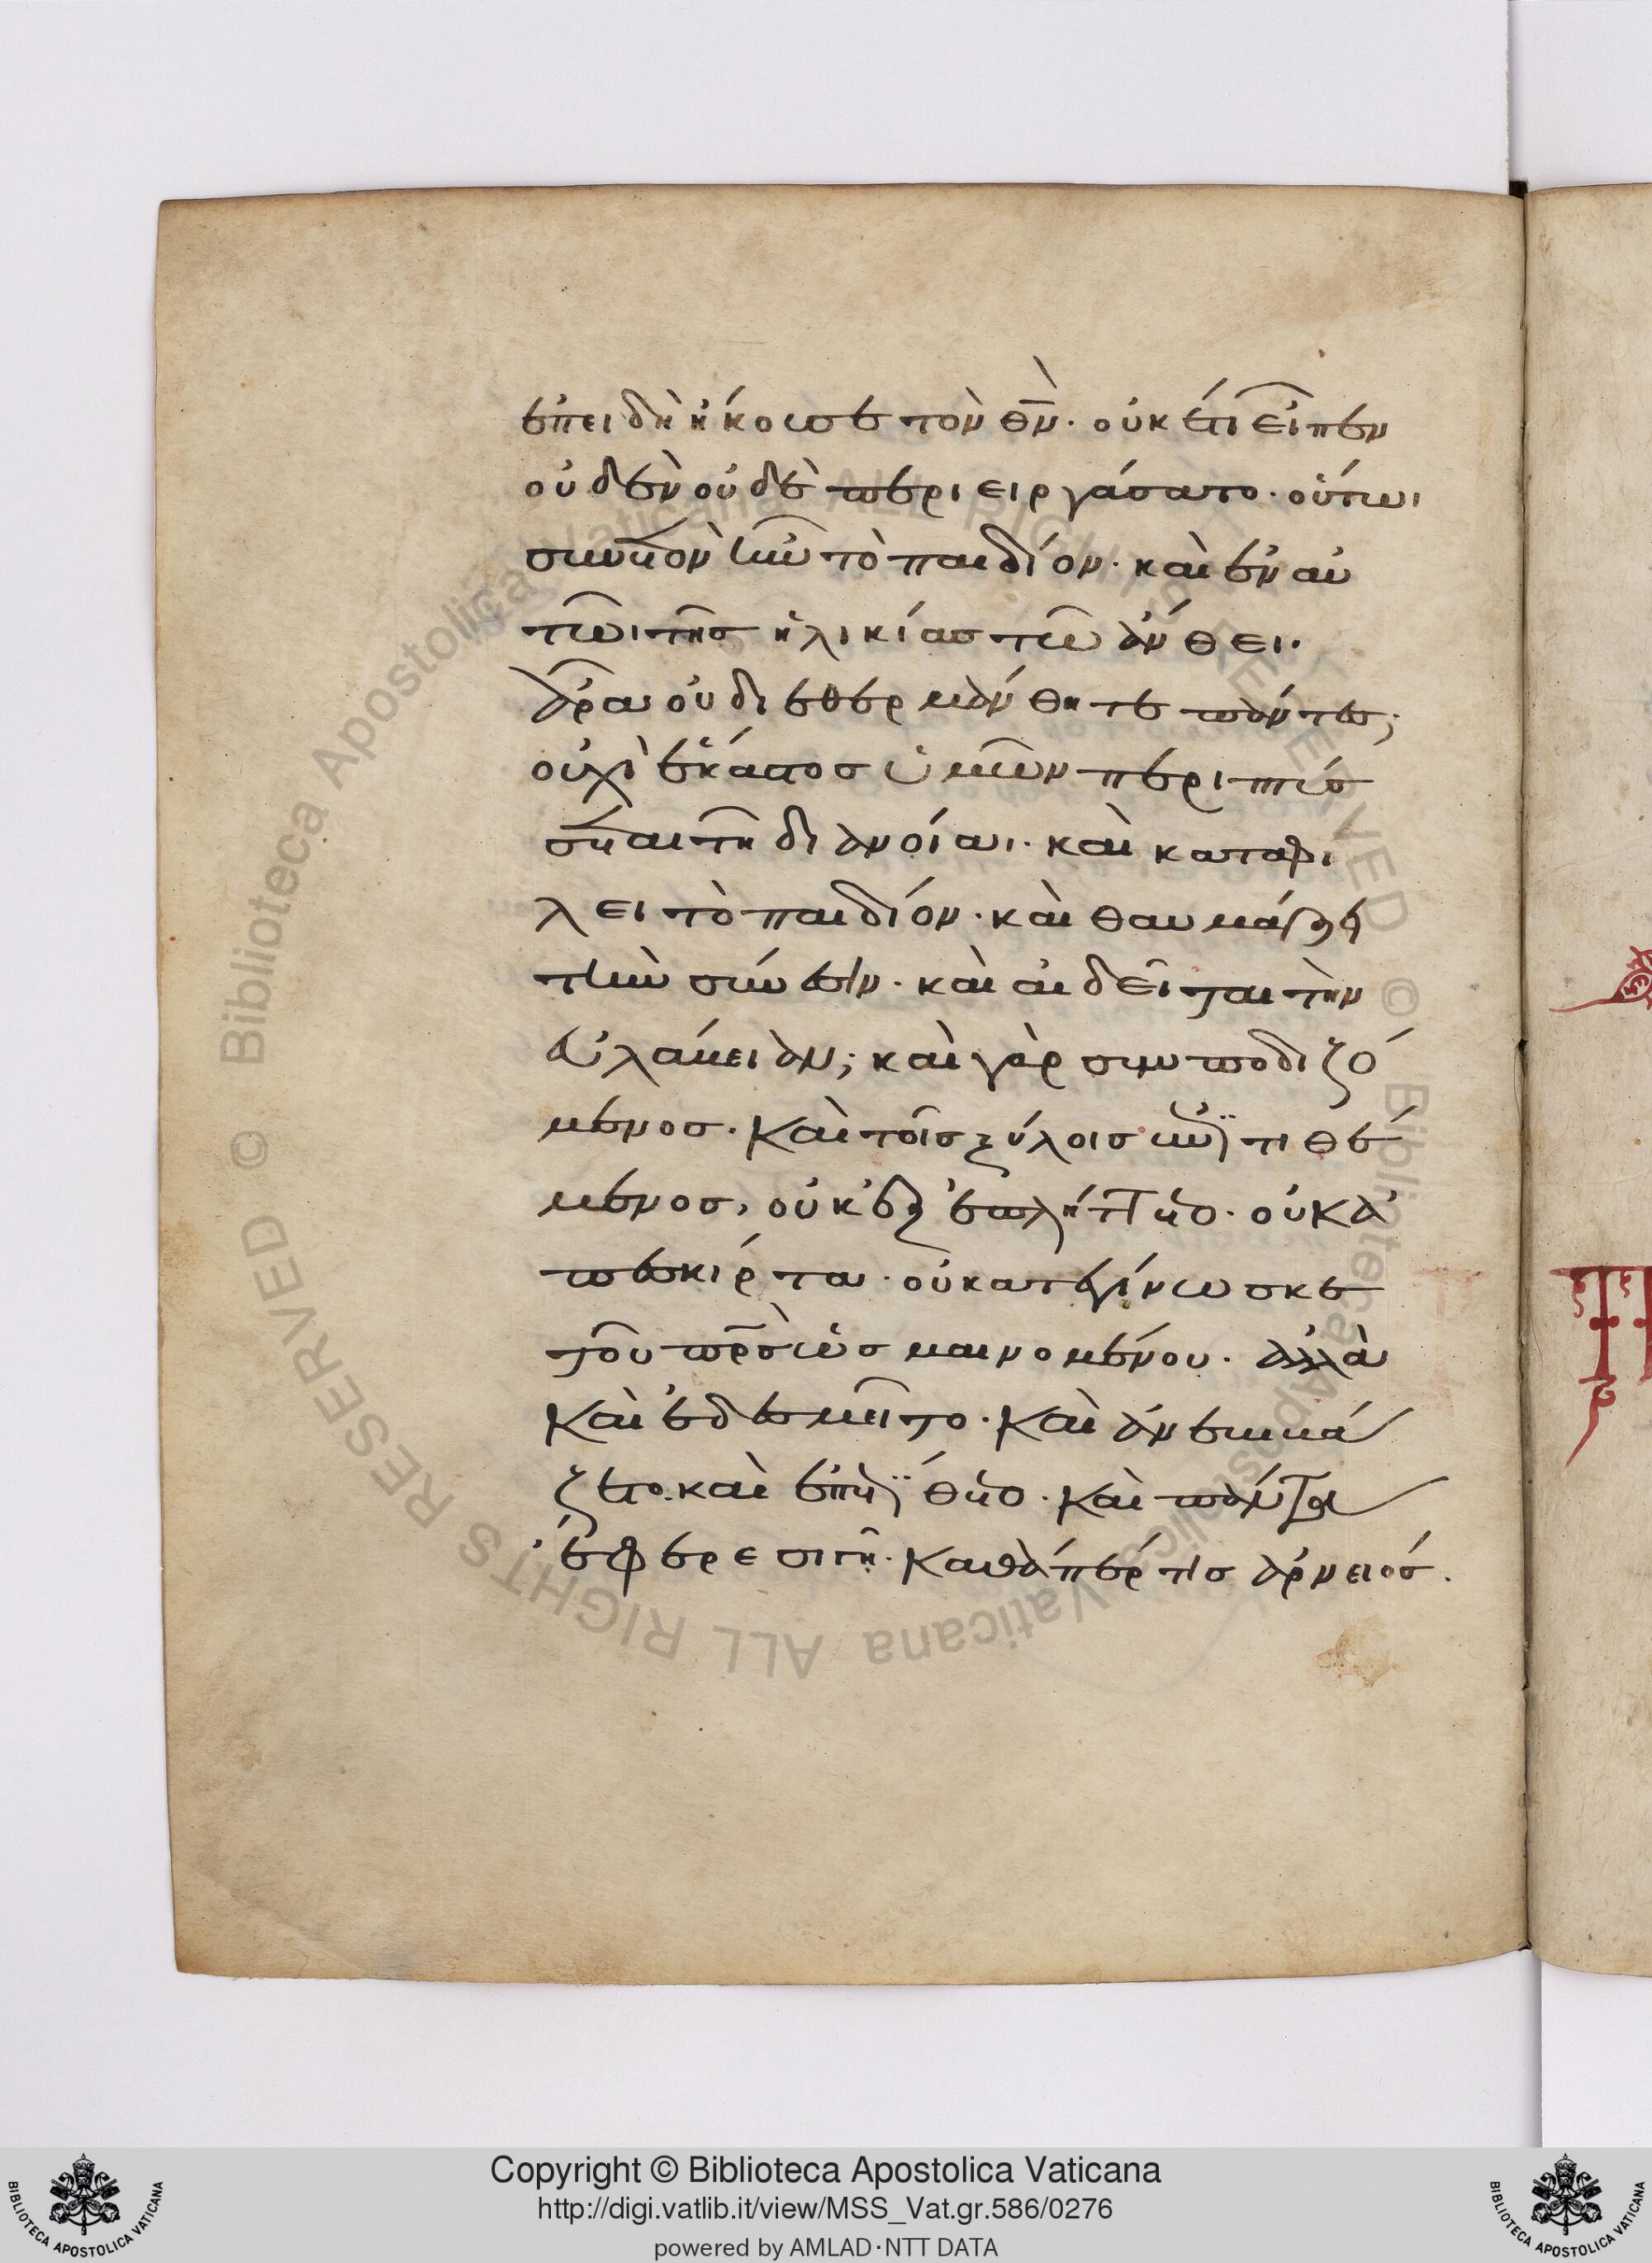 ἐπειδὴ ἤκουσε τὸν θ̅ν̅· οὐκέτι εἶπεν
οὐδὲν οὐδὲ περιειργάσατο· οὕτωι
συνετὸν ἦν τὸ παιδίον· καὶ ἐν αὐ
τῶι τῆς ἡλικίας τῶ ἄνθει·
ἆρα οὐ διεθερμάνθητε πάντες;
οὐχὶ ἕκαστος ὑμῶν περιπτύσ
σεται τῆ διανοίαι· καὶ καταφι
λεῖ τὸ παιδίον· καὶ θαυμάζει
τὴν σύνεσιν· καὶ αἰδεῖται τὴν
εὐλάβειαν; καὶ γὰρ συμποδιζό
μενος· καὶ τοῖς ξύλοις ἐπιτιθέ
μενος, οὐκ ἐξεπλήττετο· οὐκ ἀ
πεσκίρτα· οὐ κατεγίνωσκε
τοῦ πρ̅ς̅ ὡς μαινομένου· ἀλλὰ
καὶ ἐδεσμεῖτο· καὶ ἀνεβιβά
ζετο· καὶ ἐπετίθετο· καὶ πάντα
ἔφερε σιγῆ· καθάπερ τὶς ἀρνειός.
Copyright © Biblioteca Apostolica Vaticana
http://digi.vatlib.it/view/MSS_Vat.gr.586/0276
powered by AMLAD·NTT DATA
BIBLIOTECA APOSTOLICA VATICANA
BIBLIOTECA APOSTOLICA VATICANA
© Biblioteca Apostolica Vaticana ALL RIGHTS RESERVED © Biblioteca Apostolica Vaticana ALL RIGHTS RESERVED